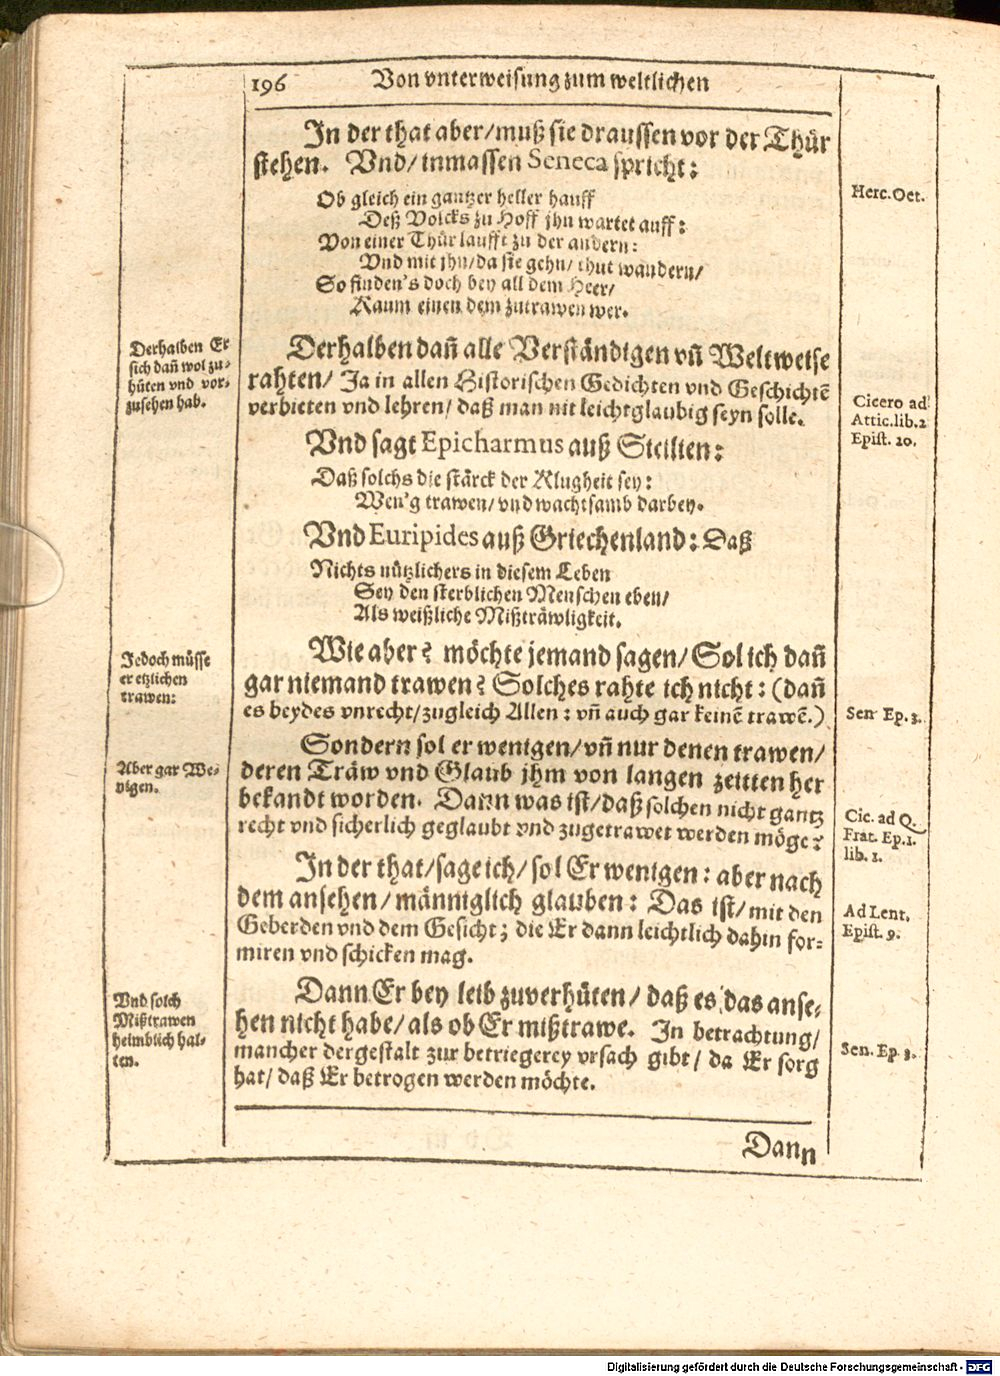 196 Von vnterweisung zum weltlichen
In der that aber/muß sie draussen vor der Thür
stehen. Vnd/inmassen Seneca spricht:
Herc. Oet.
Ob gleich ein gantzer heller hauff
Deß Volcks zu Hoff jhn wartet auff:
Von einer Thür laufft zu der andern:
Vnd mit jhn/da sie gehn/thut wandern/
So finden's doch bey all dem Heer/
Kaum einen dem zutrawen wer.
Derhalben Er
sich dañ wol zu-
hüten vnd vor-
zusehen hab.
Derhalben dañ alle Verständigen vñ Weltweise
rahten/ Ja in allen Historischen Gedichten vnd Geschichtē
verbieten vnd lehren/ daß man nit leichtglaubig seyn solle.
Cicero ad
Attic. lib. 2
Epist. 20.
Vnd sagt Epicharmus auß Sicilien:
Daß solchs die stärck der Klugheit sey:
Wen'g trawen/vnd wachtsamb darbey.
Vnd Euripides auß Griechenland: Daß
Nichts nützlichers in diesem Leben
Sey den sterblichen Menschen eben/
Als weißliche Mißträwligkeit.
Jedoch müsse
er etzlichen
trawen:
Wie aber? möchte jemand sagen/ Sol ich dañ
gar niemand trawen? Solches rahte ich nicht: (dañ
es beydes vnrecht/zugleich Allen: vñ auch gar keinē trawē.)
Sen Ep. 3.
Aber gar We-
nigen.
Sondern sol er wenigen/vñ nur denen trawen/
deren Träw vnd Glaub jhm von langen zeitten her
bekandt worden. Dann was ist/daß solchen nicht gantz
recht vnd sicherlich geglaubt vnd zugetrawet werden möge?
Cic. ad Q.
Frat. Ep. 1.
lib. 1.
In der that/sage ich/sol Er wenigen: aber nach
dem ansehen/männiglich glauben: Das ist/mit den
Geberden vnd dem Gesicht; die Er dann leichtlich dahin for-
miren vnd schicken mag.
Ad Lent.
Epist. 9.
Vnd solch
Mißtrawen
heimblich hal-
ten.
Dann Er bey leib zuverhüten/ daß es das anse-
hen nicht habe/als ob Er mißtrawe. In betrachtung/
mancher dergestalt zur betriegerey vrsach gibt/ da Er sorg
hat/ daß Er betrogen werden möchte.
Sen. Ep. 3.
Dann
Digitalisierung gefördert durch die Deutsche Forschungsgemeinschaft - DFG